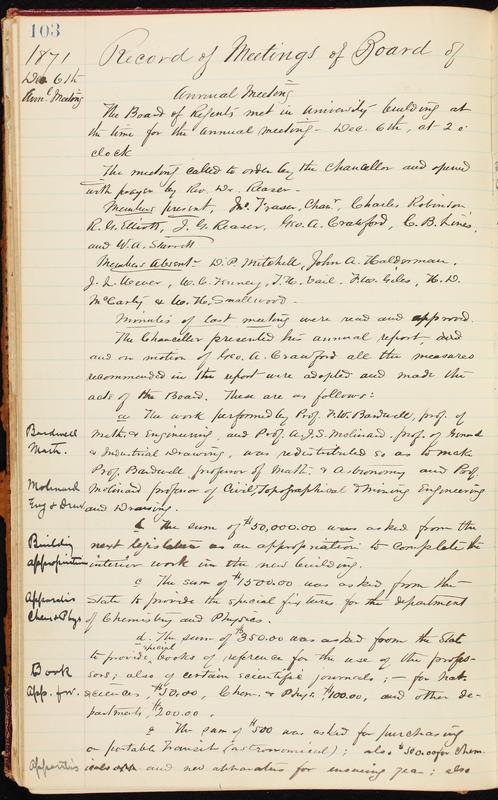 103
1871
Record of Meetings of Board of
Dec 6th
Annl Meeting
Annual Meeting
The Board of Regents met in University building at
the time for the annual meeting - Dec. 6th, at 2 o'
clock
The meeting called to order by the Chancellor and opened
with prayer by Rev. Dr. Reaser -
Members present, Jno. Fraser, Chanr, Charles Robinson
R. G. Elliott, J. G. Reaser, Geo. A. Crawford, C. B. Lines,
and W. A.
Members Absent - D. P. Mitchell, John A. Halderman,
J. L. Wever, W. C. Tenney, T. H. Vail, F. W. Giles, H. D.
McCarty & W. H. Smallwood -
Minutes of last meeting were read and approved.
The Chancellor presented his annual report,
and on motion of Geo. A. Crawford all the measures
recommended in the report were adopted and made the
acts of the Board. These are as follows:
a The work performed by Prof. F. W. Bardwell, prof. of
Bardwell
Math.
Math. & Engineering, and Prof. A. J. S. Molinard, prof. of
& Industrial drawing, was redistributed so as to make
Prof. Bardwell professor of Math. & Astronomy and Prof.
Molinard
Eng & Draw
Molinard professor of Civil, Topographical & Mining Engineering
and Drawing.
b. The sum of $50,000.00 was asked from the
Building
appropriation
next legislature as an appropriation to complete the
interior work in the new building.
c The sum of $1500.00 was asked from the
Apparatus
Chem & Phys
State to provide the special fixtures for the department
of Chemistry and Physics.
d. The sum of $350.00 was asked from the State
to provide special books of reference for the use of the profes-
Book
app. for.
sors; also of certain scientific journals; - for Nat.
sciences $50.00, Chem. & Phys. $100.00, and other de-
partments, $200.00.
e The sum of $500 was asked for purchasing
a portable Transit (astronomical); also $50.00 for Chem-
Apparatus
icals and new apparatus for ensuing year; also